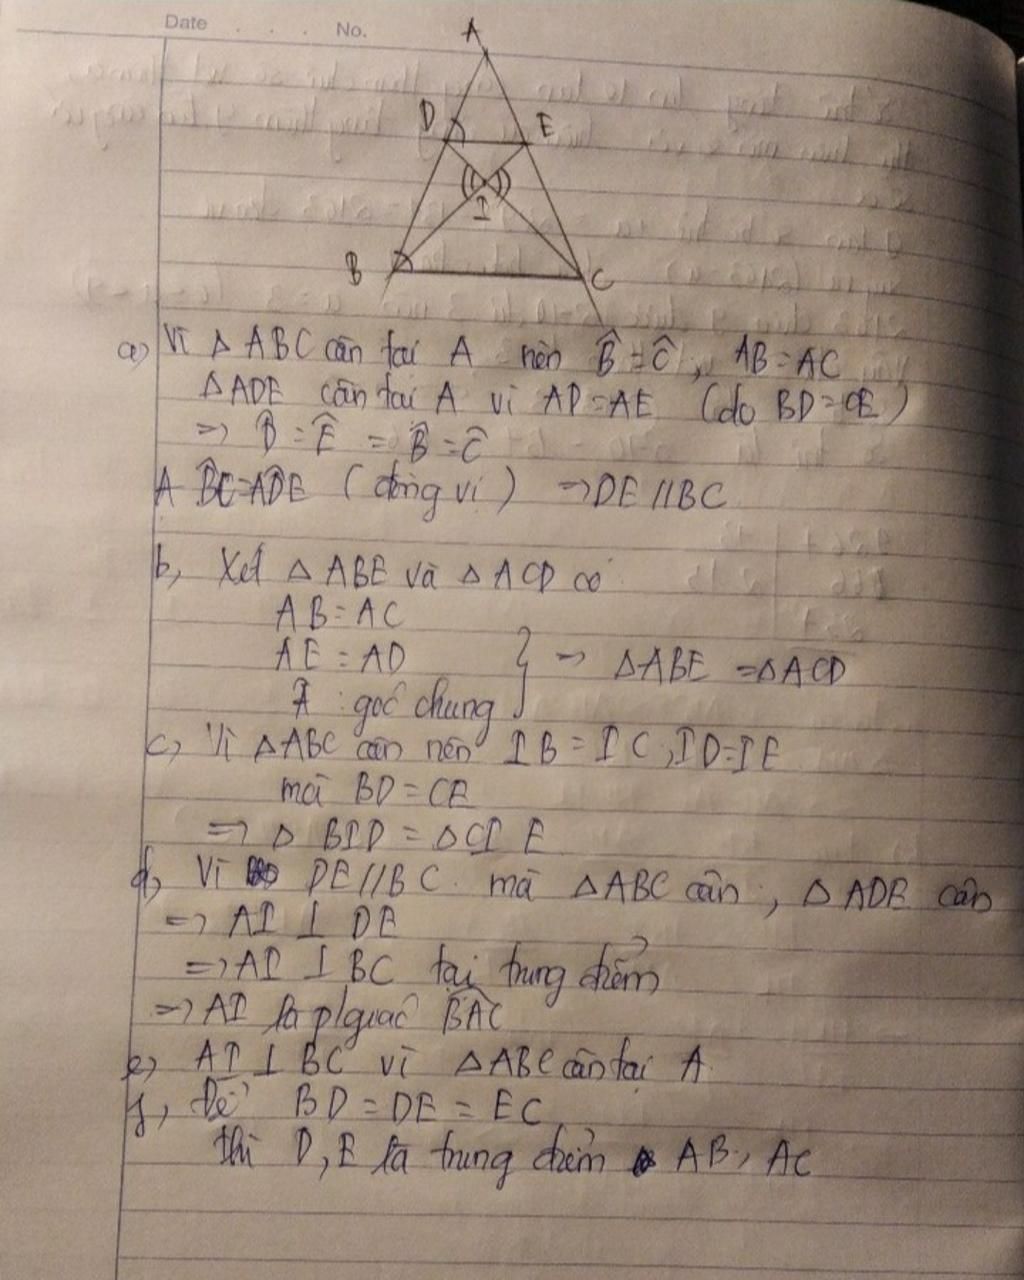 Date . . . No.
A
D E
I
B C
a) Vì △ ABC cân tại A nên B̂ = Ĉ, AB = AC
△ADE cân tại A vì AD = AE (do BD = CE)
=> D̂ = Ê = B̂ = Ĉ
ABC = ADE (đồng vị) => DE // BC
b, Xét △ ABE và △ ACD có
AB = AC
AE = AD } => △ABE = △ACD
Â : góc chung
c, Vì △ABC cân nên IB = IC, ID = IE
mà BD = CE
=> △ BID = △CIE
d, Vì DE // BC. mà △ABC cân, △ ADE cân
=> AI ⊥ DE
=> AI ⊥ BC tại trung điểm
=> AI là p/giác BÂC
e) AI ⊥ BC vì △ABC cân tại A.
f, Để BD = DE = EC
thì D, E là trung điểm AB, AC